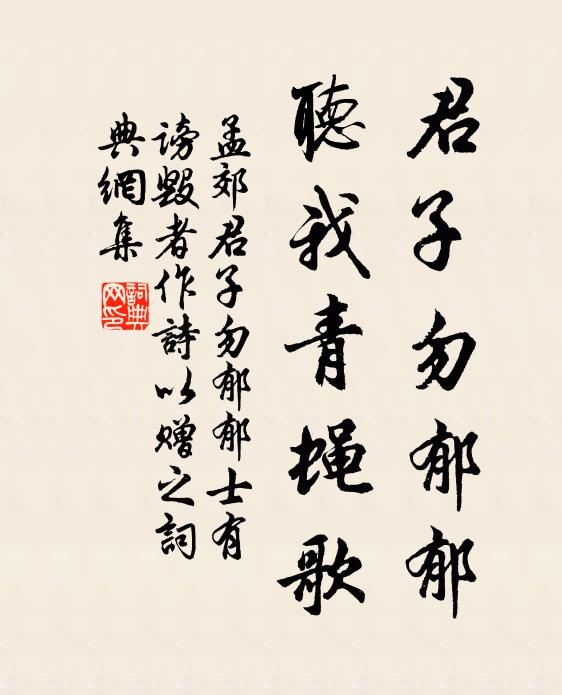 君子勿郁郁
聽我青蝇歌
孟郊君子勿郁郁士有
謗毀者作詩以赠之詞
典網集
詞典网印